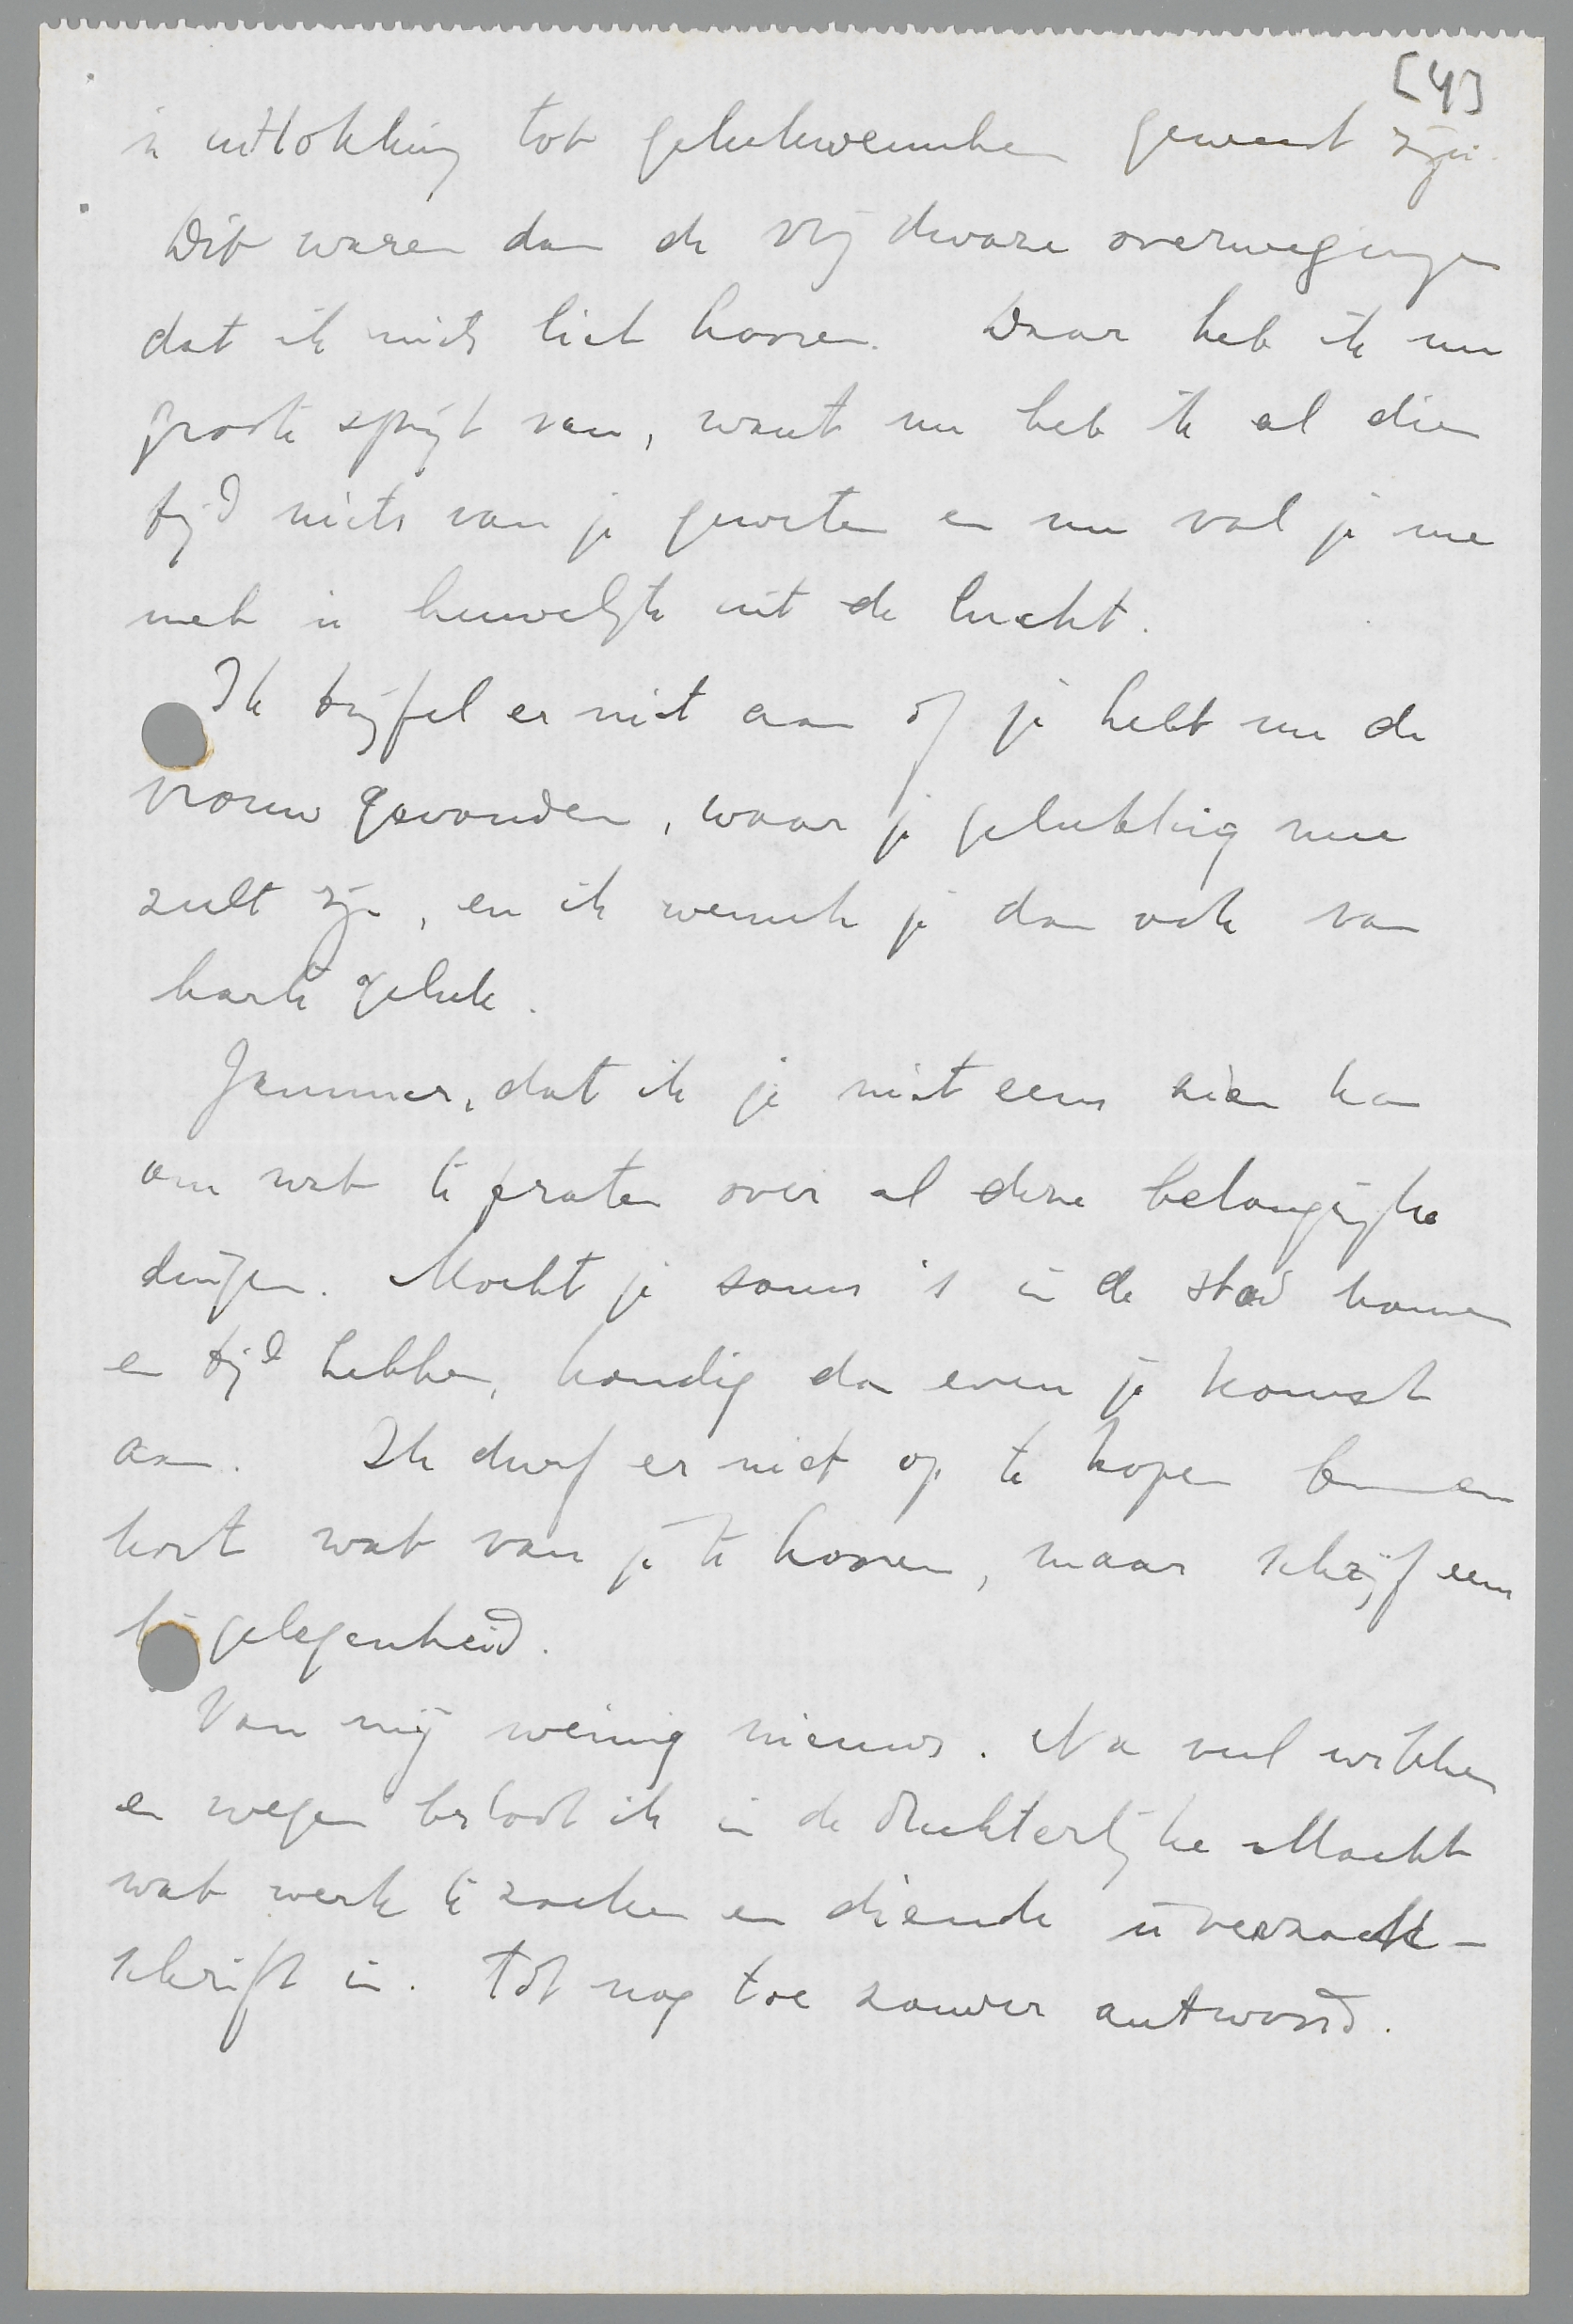 [4]
'n uitlokking tot gelukwenschen geweest zijn.
Dit waren dan de vrij dwaze overwegingen
dat ik niets liet hooren. Daar heb ik nu
groote spijt van, want nu heb ik al dien
tijd niets van je geweten en nu val je me
met 'n huwelijk uit de lucht.
Ik twijfel er niet aan of je hebt nu de
vrouw gevonden, waar je gelukkig mee
zult zijn, en ik wensch je dan ook van
harte geluk.
Jammer, dat ik je niet eens zien kan
om wat te praten over al deze belangrijke
dingen. Mocht je soms 's in de stad komen
en tijd hebben, kondig dan even je komst
aan. Ik durf er niet op te hopen binnen
kort wat van je te hooren, maar schrijf eens
bij gelegenheid.
Van mij weinig nieuws. Na veel wikken
en wegen besloot ik in de Rechterlijke Macht
wat werk te zoeken en diende 'n verzoek-
schrift in. Tot nog toe zonder antwoord.